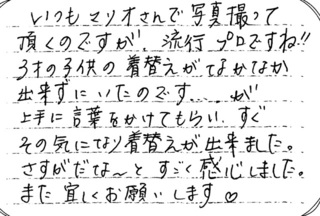 いつもマリオさんで写真撮って
頂くのですが、流行プロですね!!
3才の子供の着替えがなかなか
出来ずにいたのです....が
上手に言葉をかけてもらい、すぐ
その気になり着替えが出来ました。
さすがだな〜とすごく感心しました。
また宜しくお願いします♡